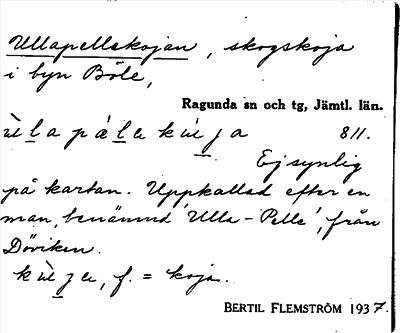 Ullapellekojan, skogskoja
i byn Böle,
Ragunda sn och tg, Jämtl. län.
811.
Ej synlig
på kartan. Uppkallad efter en
man, benämnd 'Ulla-Pelle', från
Döviken.
f. = koja.
BERTIL FLEMSTRÖM 1937.